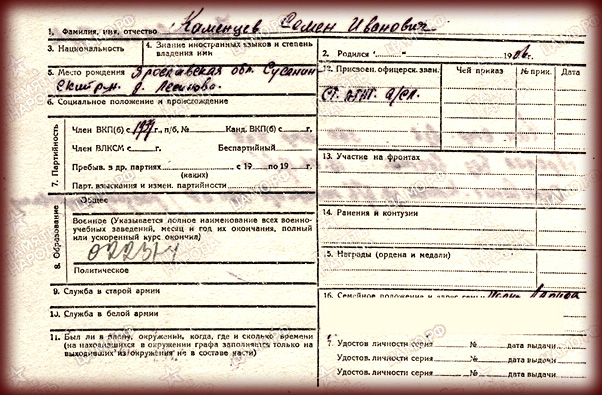 1. Фамилия, имя, отчество Каменцев Семен Иванович
3. Национальность
4. Знание иностранных языков и степень владения ими
2. Родился „ “ 1906 г.
5. Место рождения Ярославская обл. Сусанин
ский р-н. д.
6. Социальное положение и происхождение
7. Партийность
Член ВКП(б) с г., п/б, № Канд. ВКП(б) с г.
Член ВЛКСМ с г. Беспартийный
Пребыв. в др. партиях с 19 по 19 г.
(каких)
Парт. взыскания и измен. партийности
8. Образование
Общее
Военное (Указывается полное наименование всех военно-
учебных заведений, месяц и год их окончания, полный
или ускоренный курс окончил)
Политическое
9. Служба в старой армии
10. Служба в белой армии
11. Был ли в плену, окружении, когда, где и сколько времени
(на находившихся в окружении графа заполняется только на
выходивших из окружения не в составе части)
12. Присвоен. офицерск. зван. Чей приказ № прик. Дата
Ст.
13. Участие на фронтах
14. Ранения и контузии
15. Награды (ордена и медали)
16. Семейное положение и адрес семьи
Удостов. личности серия № дата выдачи
Удостов. личности серия № дата выдачи
Удостов. личности серия № дата выдачи
ЦАМО.РФ